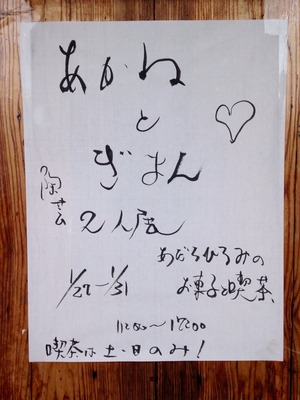 あかね
と
ぎまん
陶芸
2人展
あどろひろみの
お菓子と喫茶
1/27~1/31
11:00~17:00
喫茶は土・日のみ!